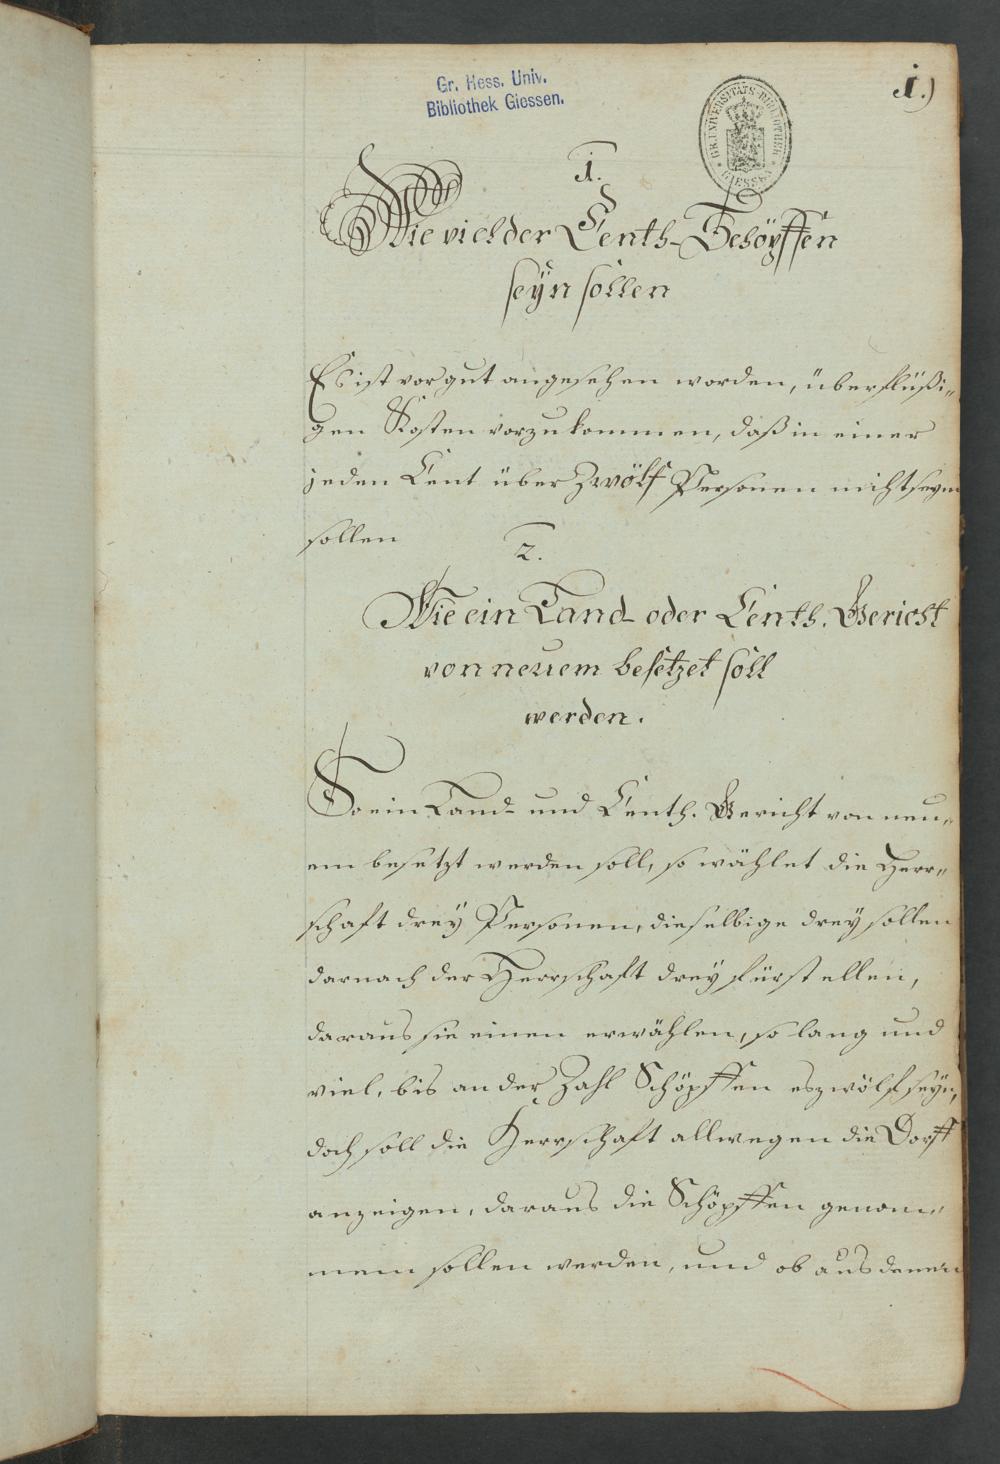 1.)
Gr. Hess. Univ.
Bibliothek Giessen.
GR. UNIVERSITÄTS-BIBLIOTHEK
GIESSEN
1.
Wie viel der Centh-Schöpffen
seÿn sollen
Es ist vor gut angesehen worden, überflüßi„
gen Kosten vorzukommen, daß in einer
jeden Cent über Zwölf Personen nicht seyn
sollen
2.
Wie ein Land- oder Centh-Gericht
von neuem besetzet soll
werden.
So ein Land- und Centh-Gericht von neu„
em besetzt werden soll, so wählet die Herr„
schaft dreÿ Personen, dieselbige dreÿ sollen
darnach der Herrschaft dreÿ fürstellen,
daraus sie einen erwählen, so lang und
viel, bis an der Zahl Schöpffen es zwölf seÿn,
doch soll die Herrschaft allwegen die Dorff
anzeigen, daraus die Schöpffen genom„
mem sollen werden, und ob aus denen